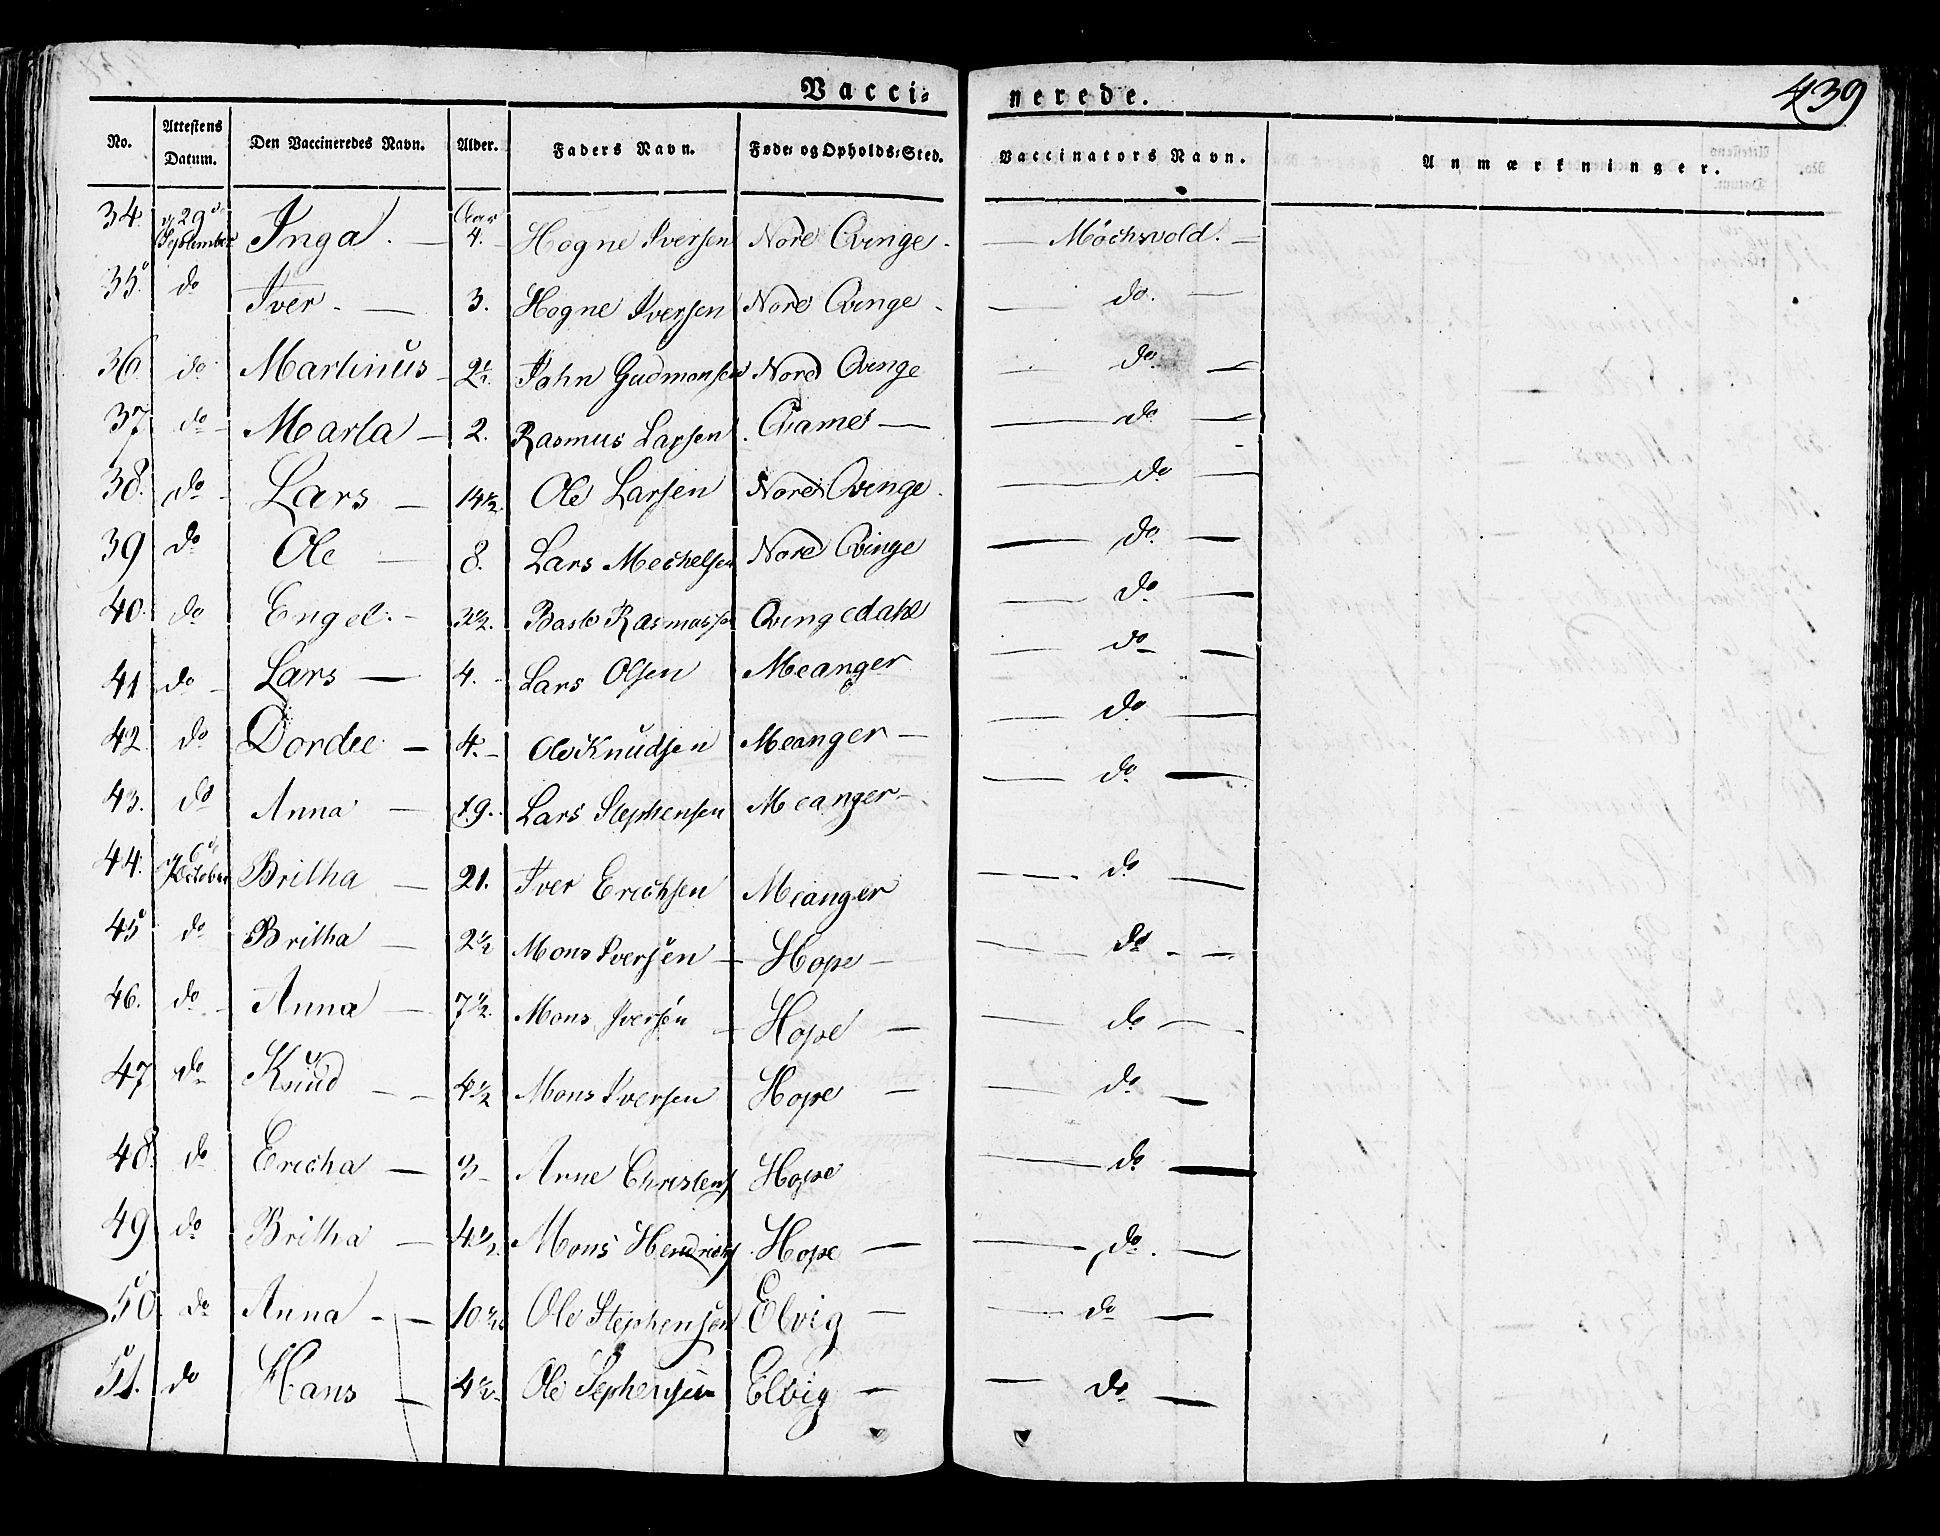 Vacci= nerede. 439
No. Attestens Datum. Den Vaccineredes Navn. Alder. Faders Navn. Føde= og Opholds=Sted. Vaccinators Navn. Anmærkninger.
34. 29 September Inga. — Aar 4. Hogne Iversen Nore Qvinge. — Möchsvold. —
35. do Iver. — 3. Hogne Iversen Nore Qvinge — do. —
36. do Martinus — 2½. Iahn Gudmonsen Nore Qvinge — do —
37. do Marta — 2. Rasmus Larsen. Qvame — — do —
38. do Lars — 14½. Ole Larsen Nore Qvinge — do —
39 do Ole — 8. Lars Mechelsen Nore Qvinge — do —
40. do Engel. — 3½. Rasmussen Qvingedahl — do —
41 do Lars — 4. Lars Olsen Meanger — do —
42 do Dordee — 4. Ole Knudsen Meanger — — do —
43. do Anna — 19. Lars Stephensen Meanger — — do —
44. 6 October Britha — 21. Iver Erichsen Meanger — do —
45 do Britha — 2½ Mons Iversen — Hope — — do —
46. do Anna — 7½. Mons Iversen — Hope — — do —
47 do Knud — 4½ Mons Iversen Hope — — do —
48. do Ericha — 3 Arne Christens Hope — do —
49 do Britha — 4½. Mons Hendrichs Hope — — do —
50. do Anna — 10½ Ole Stephensen Elvig — — do —
51. do Hans — 4½ Ole Sephensen Elvig — — do —